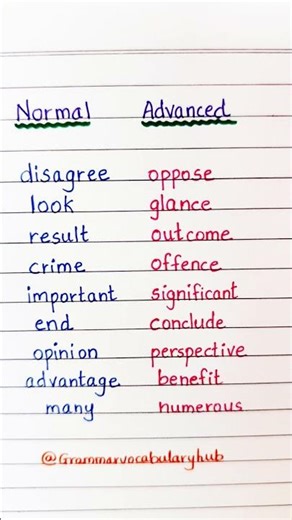 Normal Advanced
disagree oppose
look glance
result outcome
crime offence
important significant
end conclude
opinion perspective
advantage benefit
many numerous
@Grammarvocabularyhub